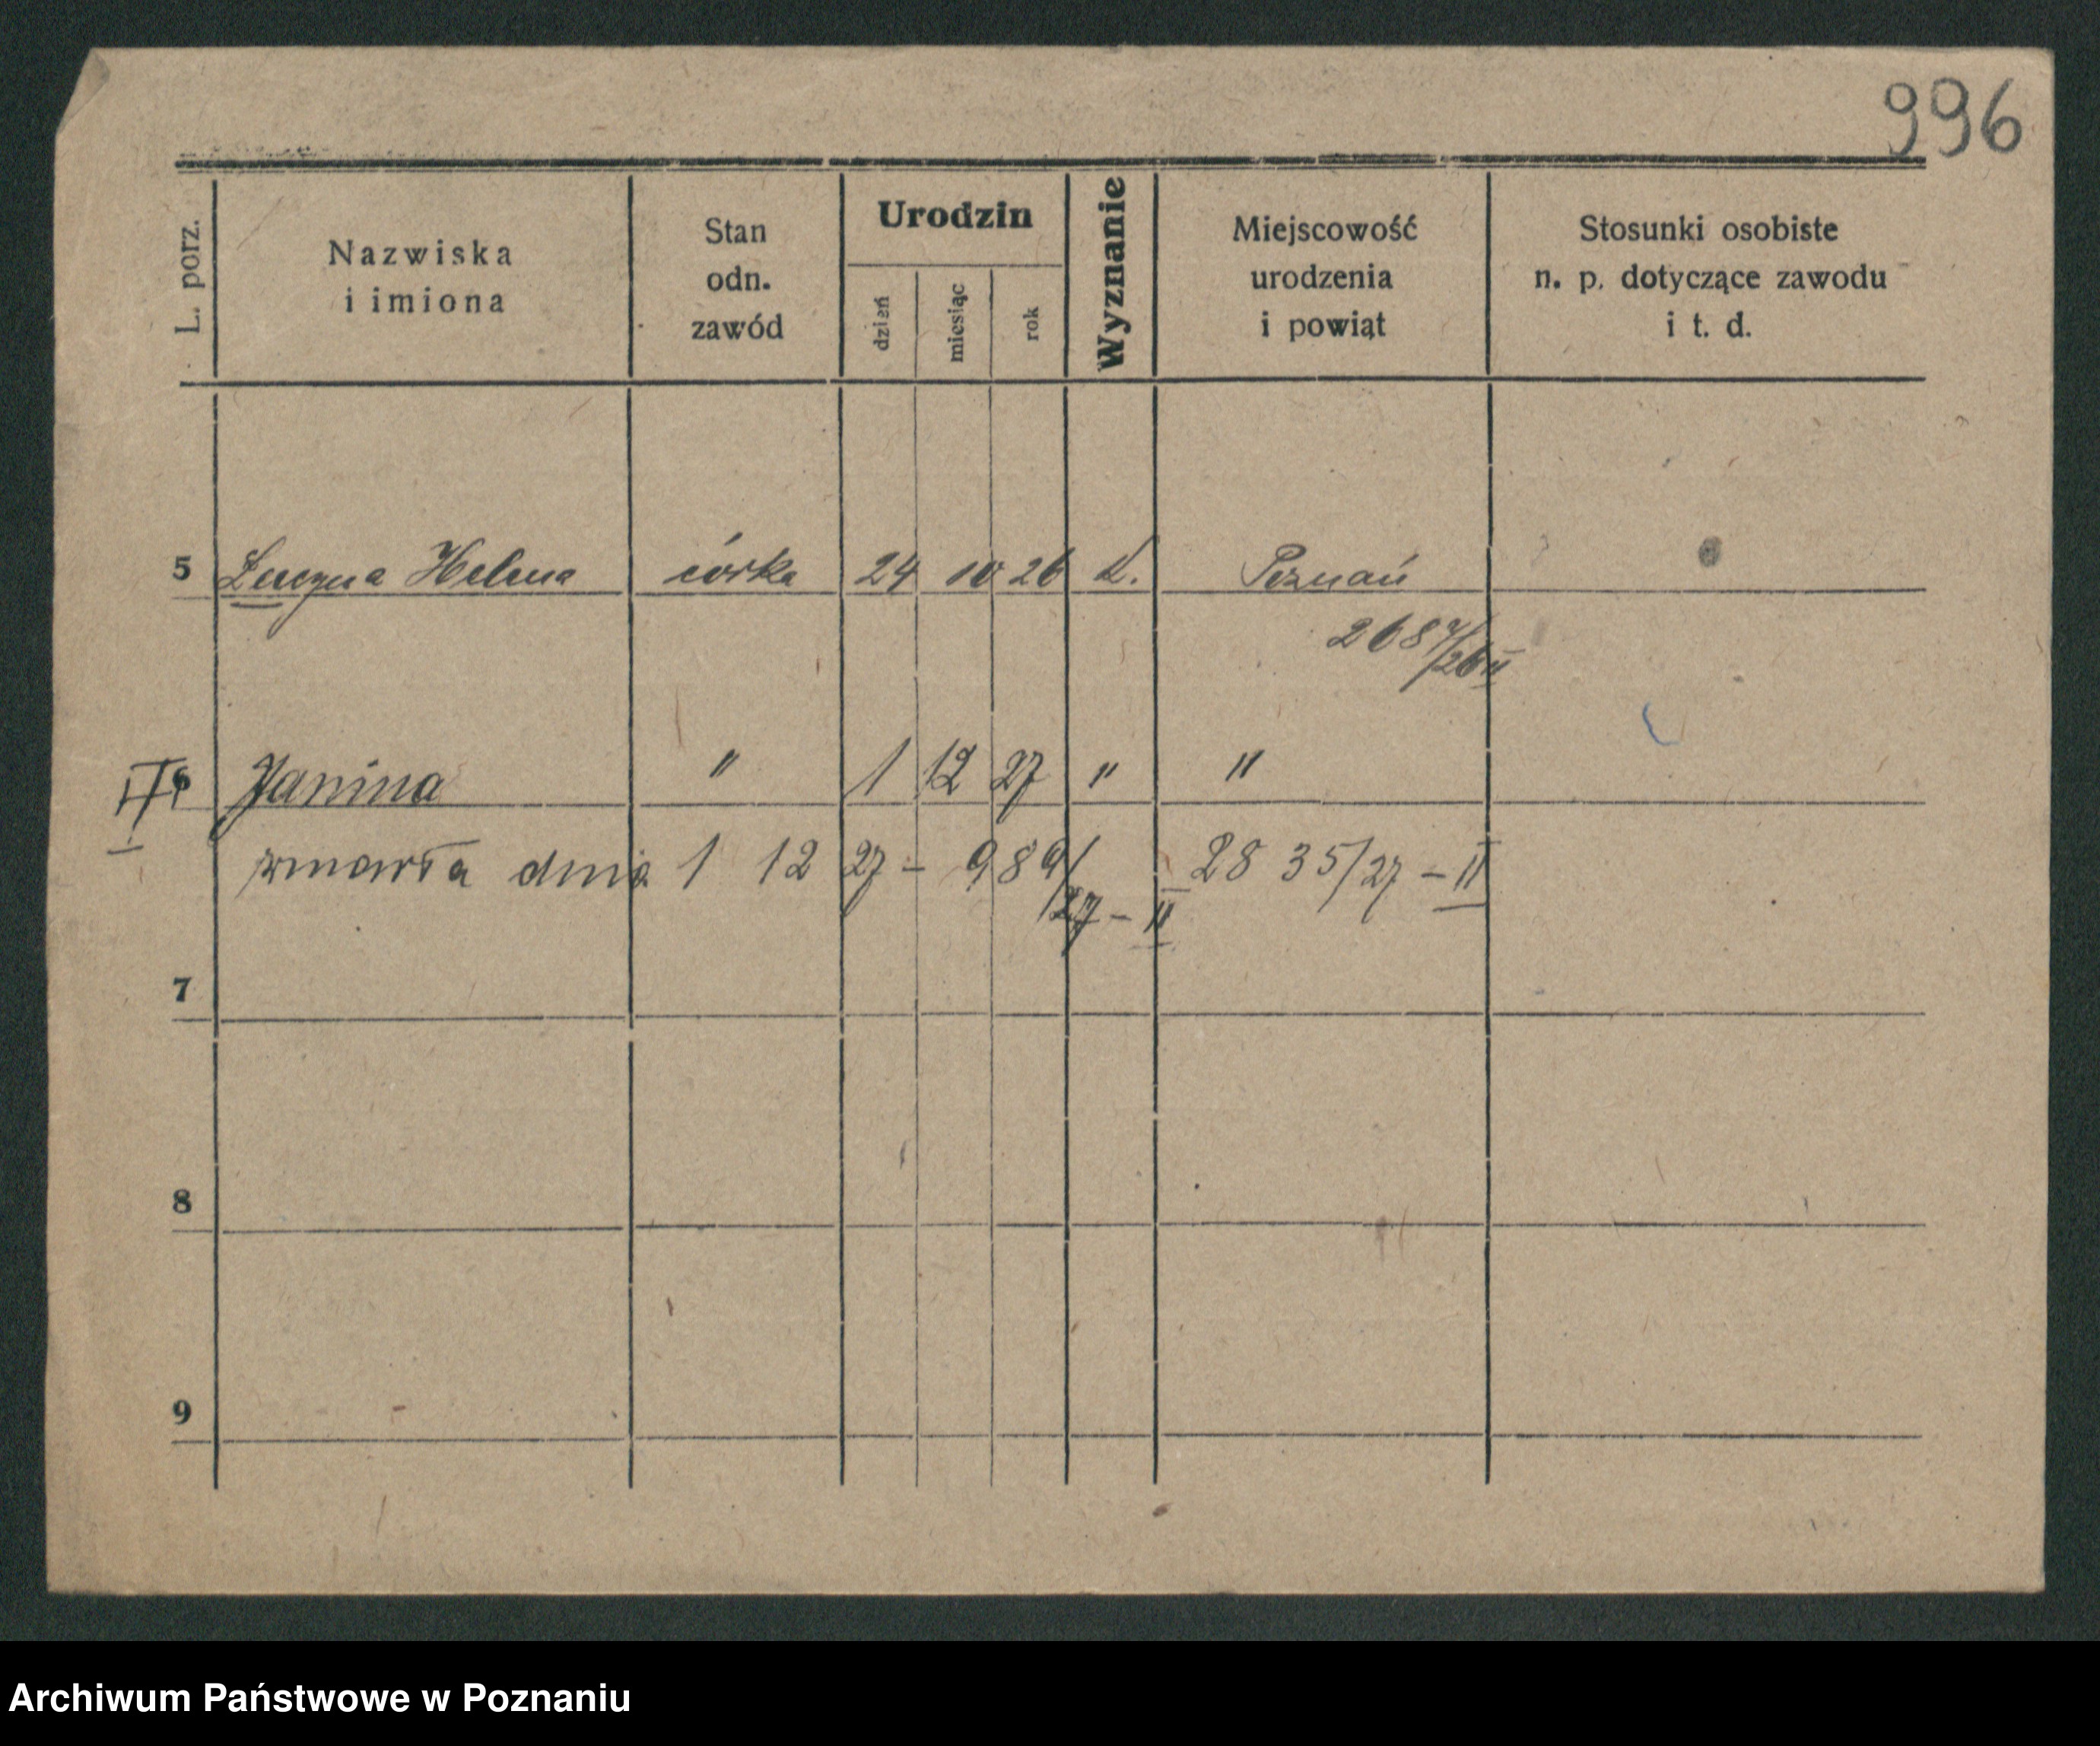 996
L. porz.
Nazwiska
i imiona
Stan
odn.
zawód
Urodzin
dzień
miesiąc
rok
Wyznanie
Miejscowość
urodzenia
i powiąt
Stosunki osobiste
n. p. dotyczące zawodu
i t. d.
5 Helena córka 24 10 26 K. Poznań
2687/26 II
6 Janina " 1 12 27 " "
zmarła dnia 1 12 27 – 989/27 – II 2835/27 – II
7
8
9
Archiwum Państwowe w Poznaniu